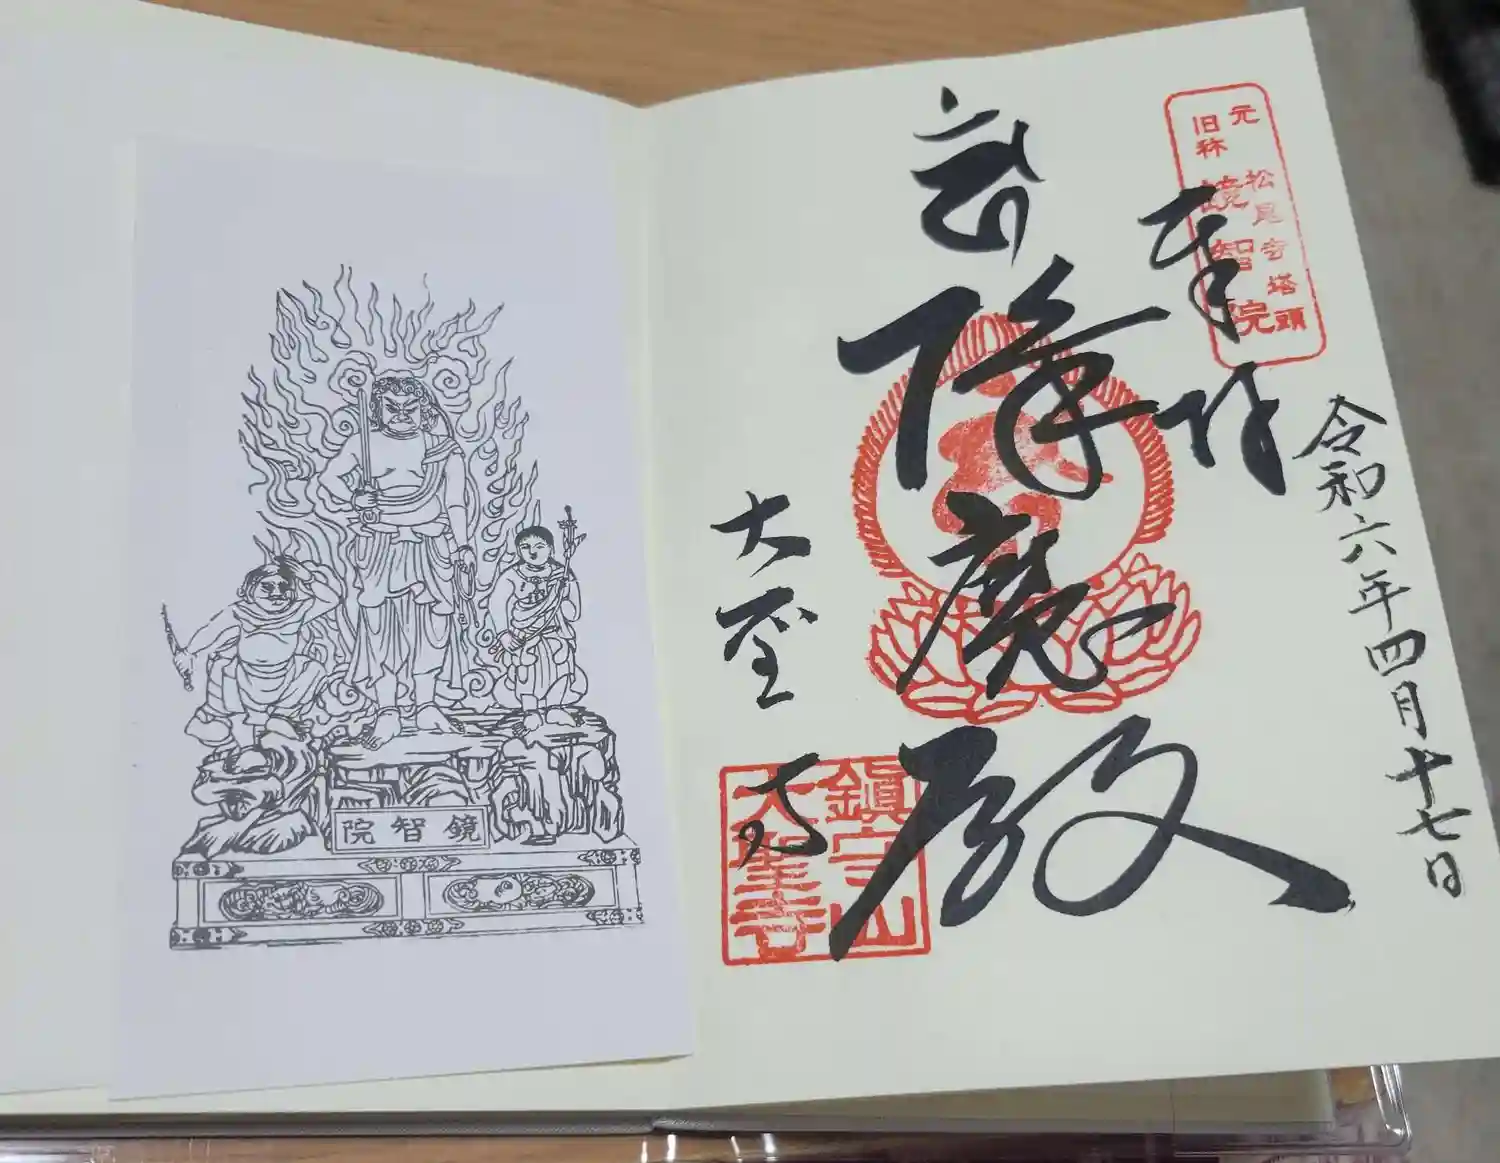 元 松尾寺塔頭
旧称 鏡智院
令和六年四月十七日
奉拝
降魔殿
大聖寺
鎭守山
大聖寺
鏡智院